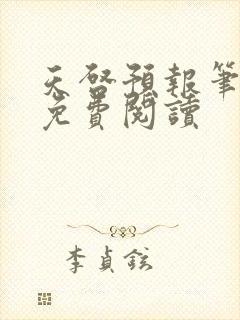 天啓預報筆
免費閱讀
李貞鉉